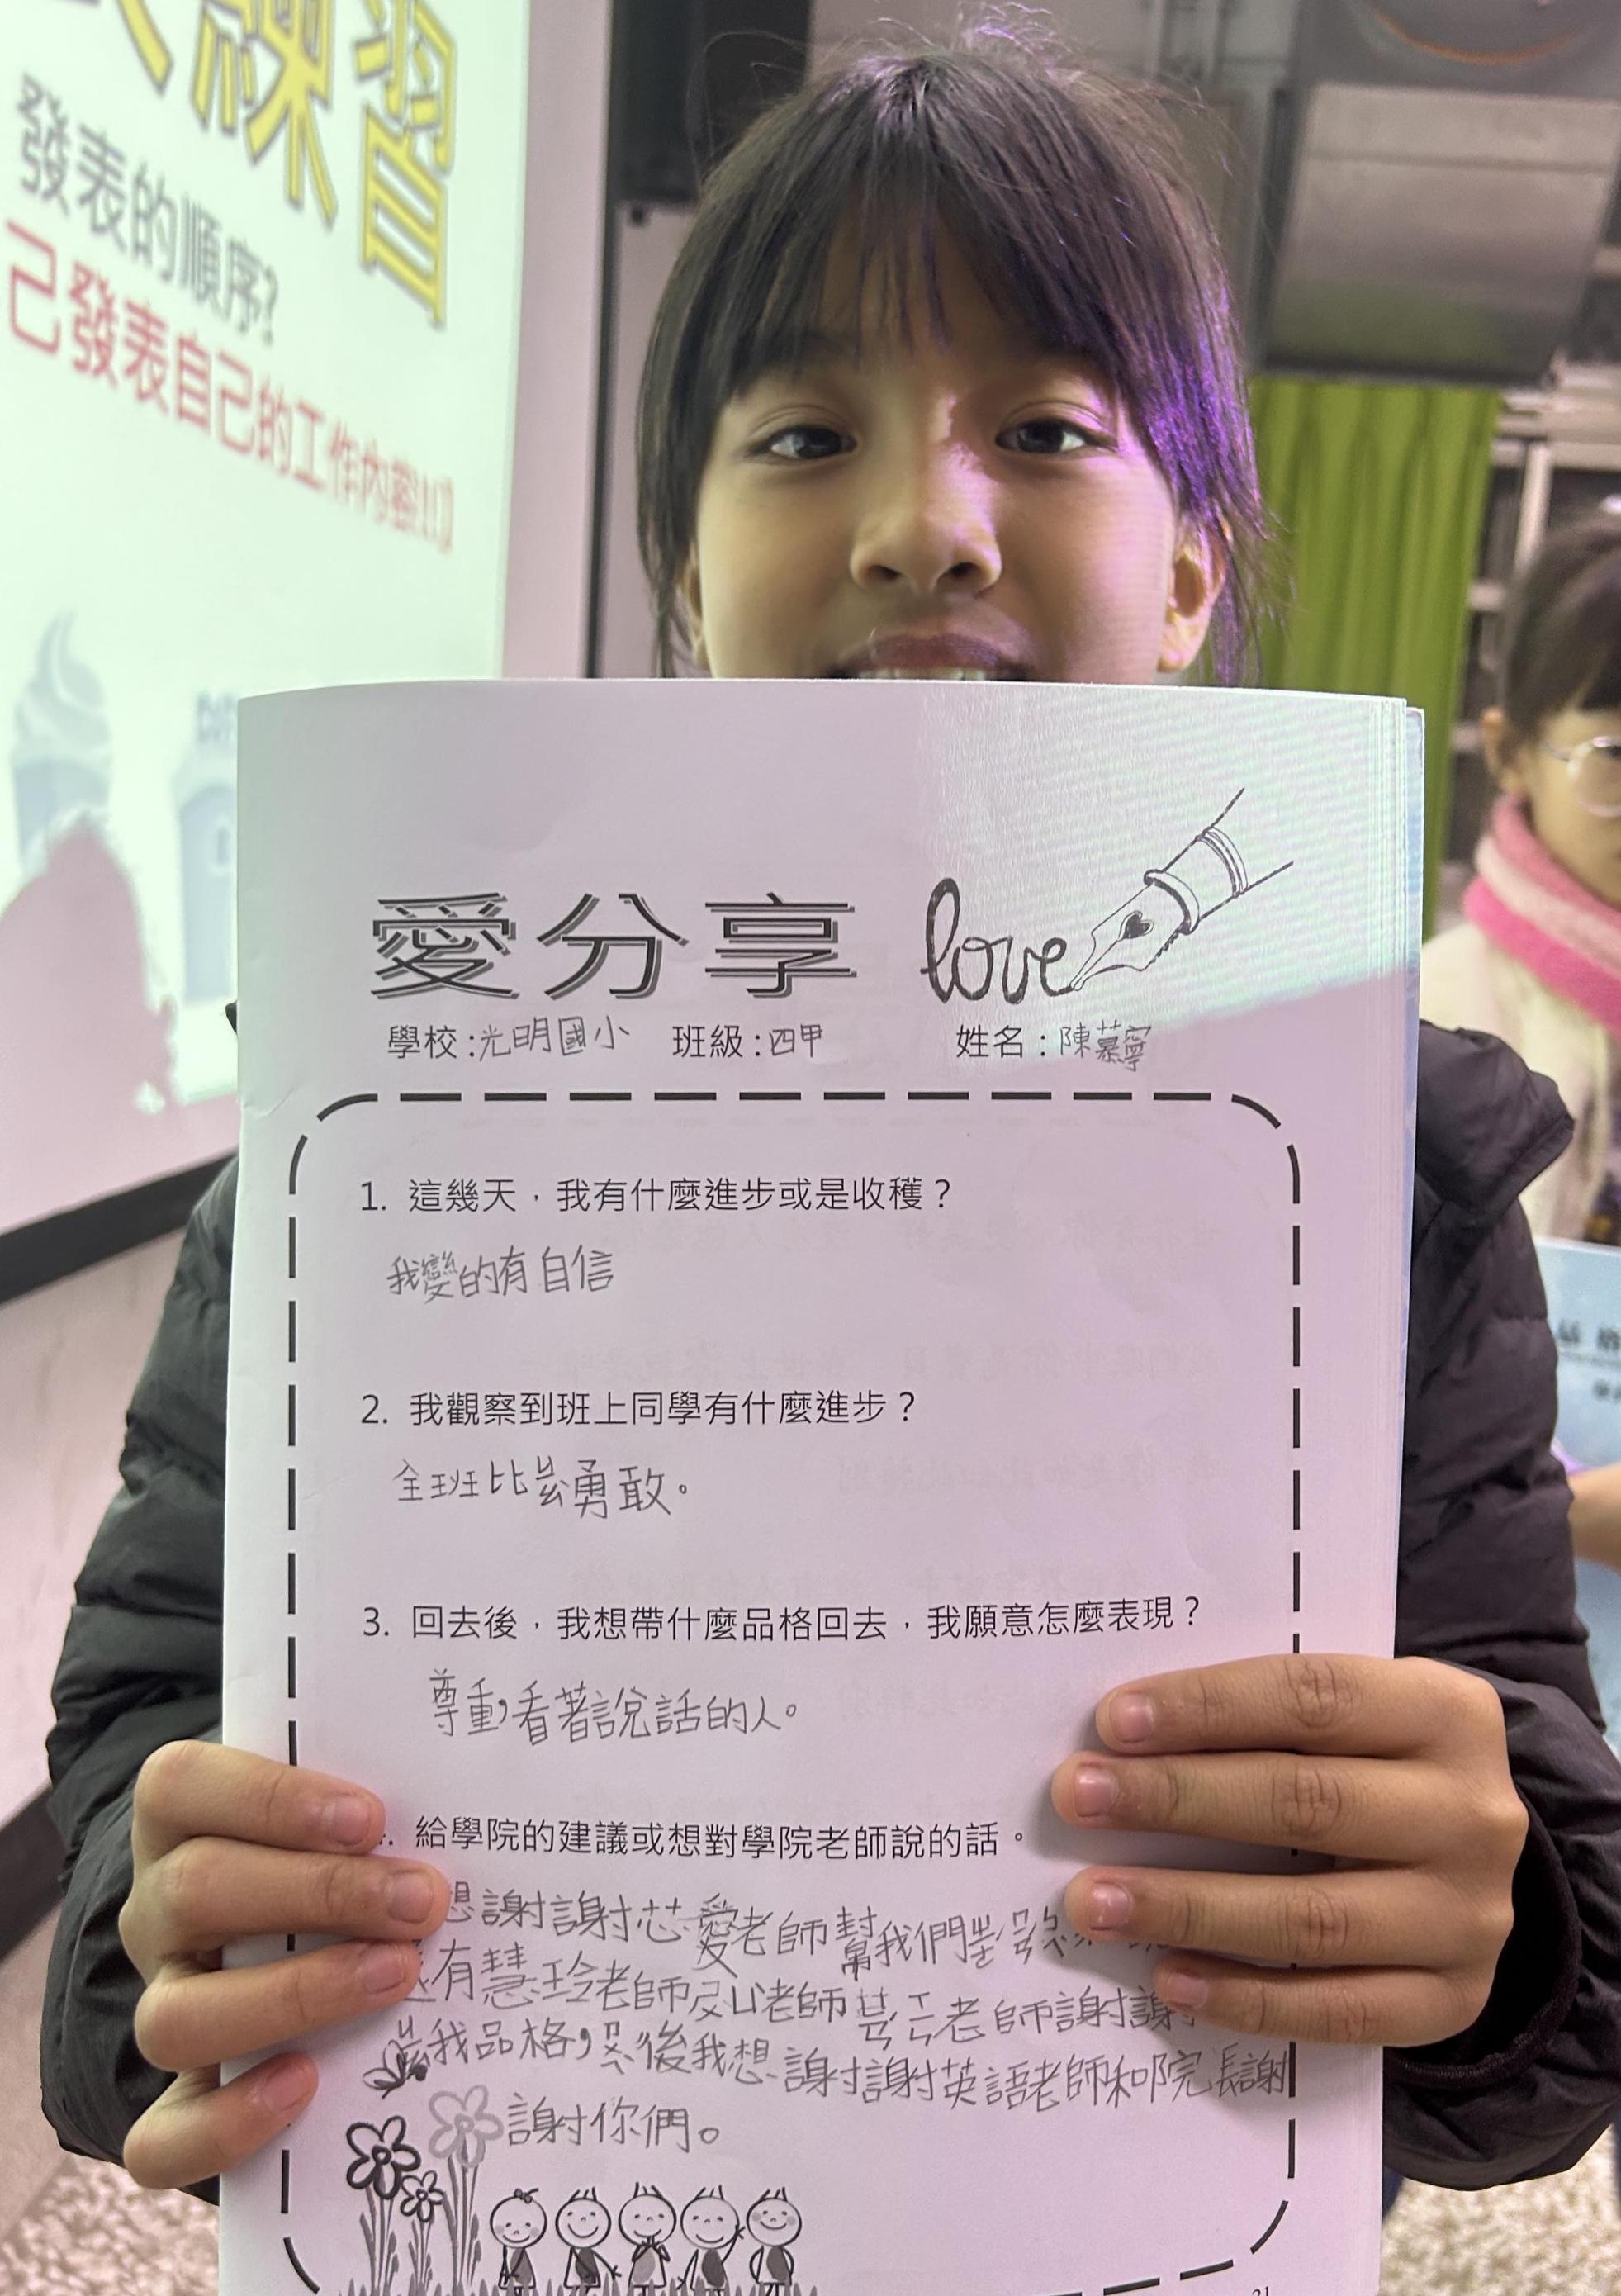 練習
發表的順序?
己發表自己的工作內容!!!】
愛分享 love
學校:光明國小 班級:四甲 姓名:陳慕寧
1. 這幾天,我有什麼進步或是收穫?
我變的有自信
2. 我觀察到班上同學有什麼進步?
全班比較勇敢。
3. 回去後,我想帶什麼品格回去,我願意怎麼表現?
尊重,看著說話的人。
給學院的建議或想對學院老師說的話。
想謝謝芯愛老師幫我們
有慧玲老師及山老師 老師謝謝
我品格, 後我想謝謝英語老師和院長謝
謝你們。
21